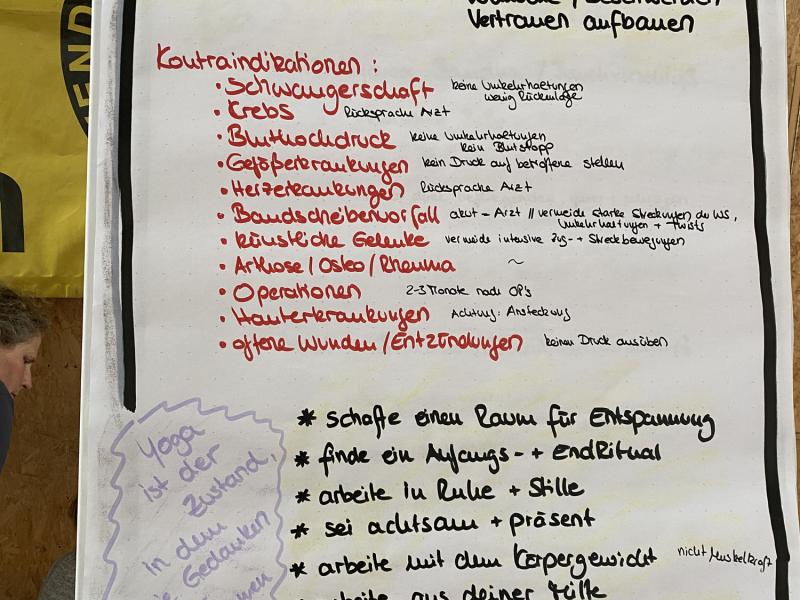 Vertrauen aufbauen
Kontraindikationen :
• Schwangerschaft keine Umkehrhaltungen
wenig Rückenlage
• Krebs Rücksprache Arzt
• Bluthochdruck keine Umkehrhaltungen
kein Blutstopp
• Gefäßerkrankungen kein Druck auf betroffene stellen
• Herzerkrankungen Rücksprache Arzt
• Bandscheibenvorfall akut - Arzt // vermeide starke Streckungen der WS,
Umkehrhaltungen + Twists
• künstliche Gelenke vermeide intensive Zug- + Streckbewegungen
• Arthose / Osteo / Rheuma ~
• Operationen 2-3 Monate nach OP's
• Hauterkrankungen Achtung: Ansteckung
• offene Wunden / Entzündungen keinen Druck ausüben
* schaffe einen Raum für Entspannung
* finde ein Anfangs- + EndRitual
* arbeite in Ruhe + Stille
* sei achtsam + präsent
* arbeite mit dem Körpergewicht nicht Muskelkraft
arbeite aus deiner Mitte
Yoga
ist der
Zustand,
in dem
Gedanken
END